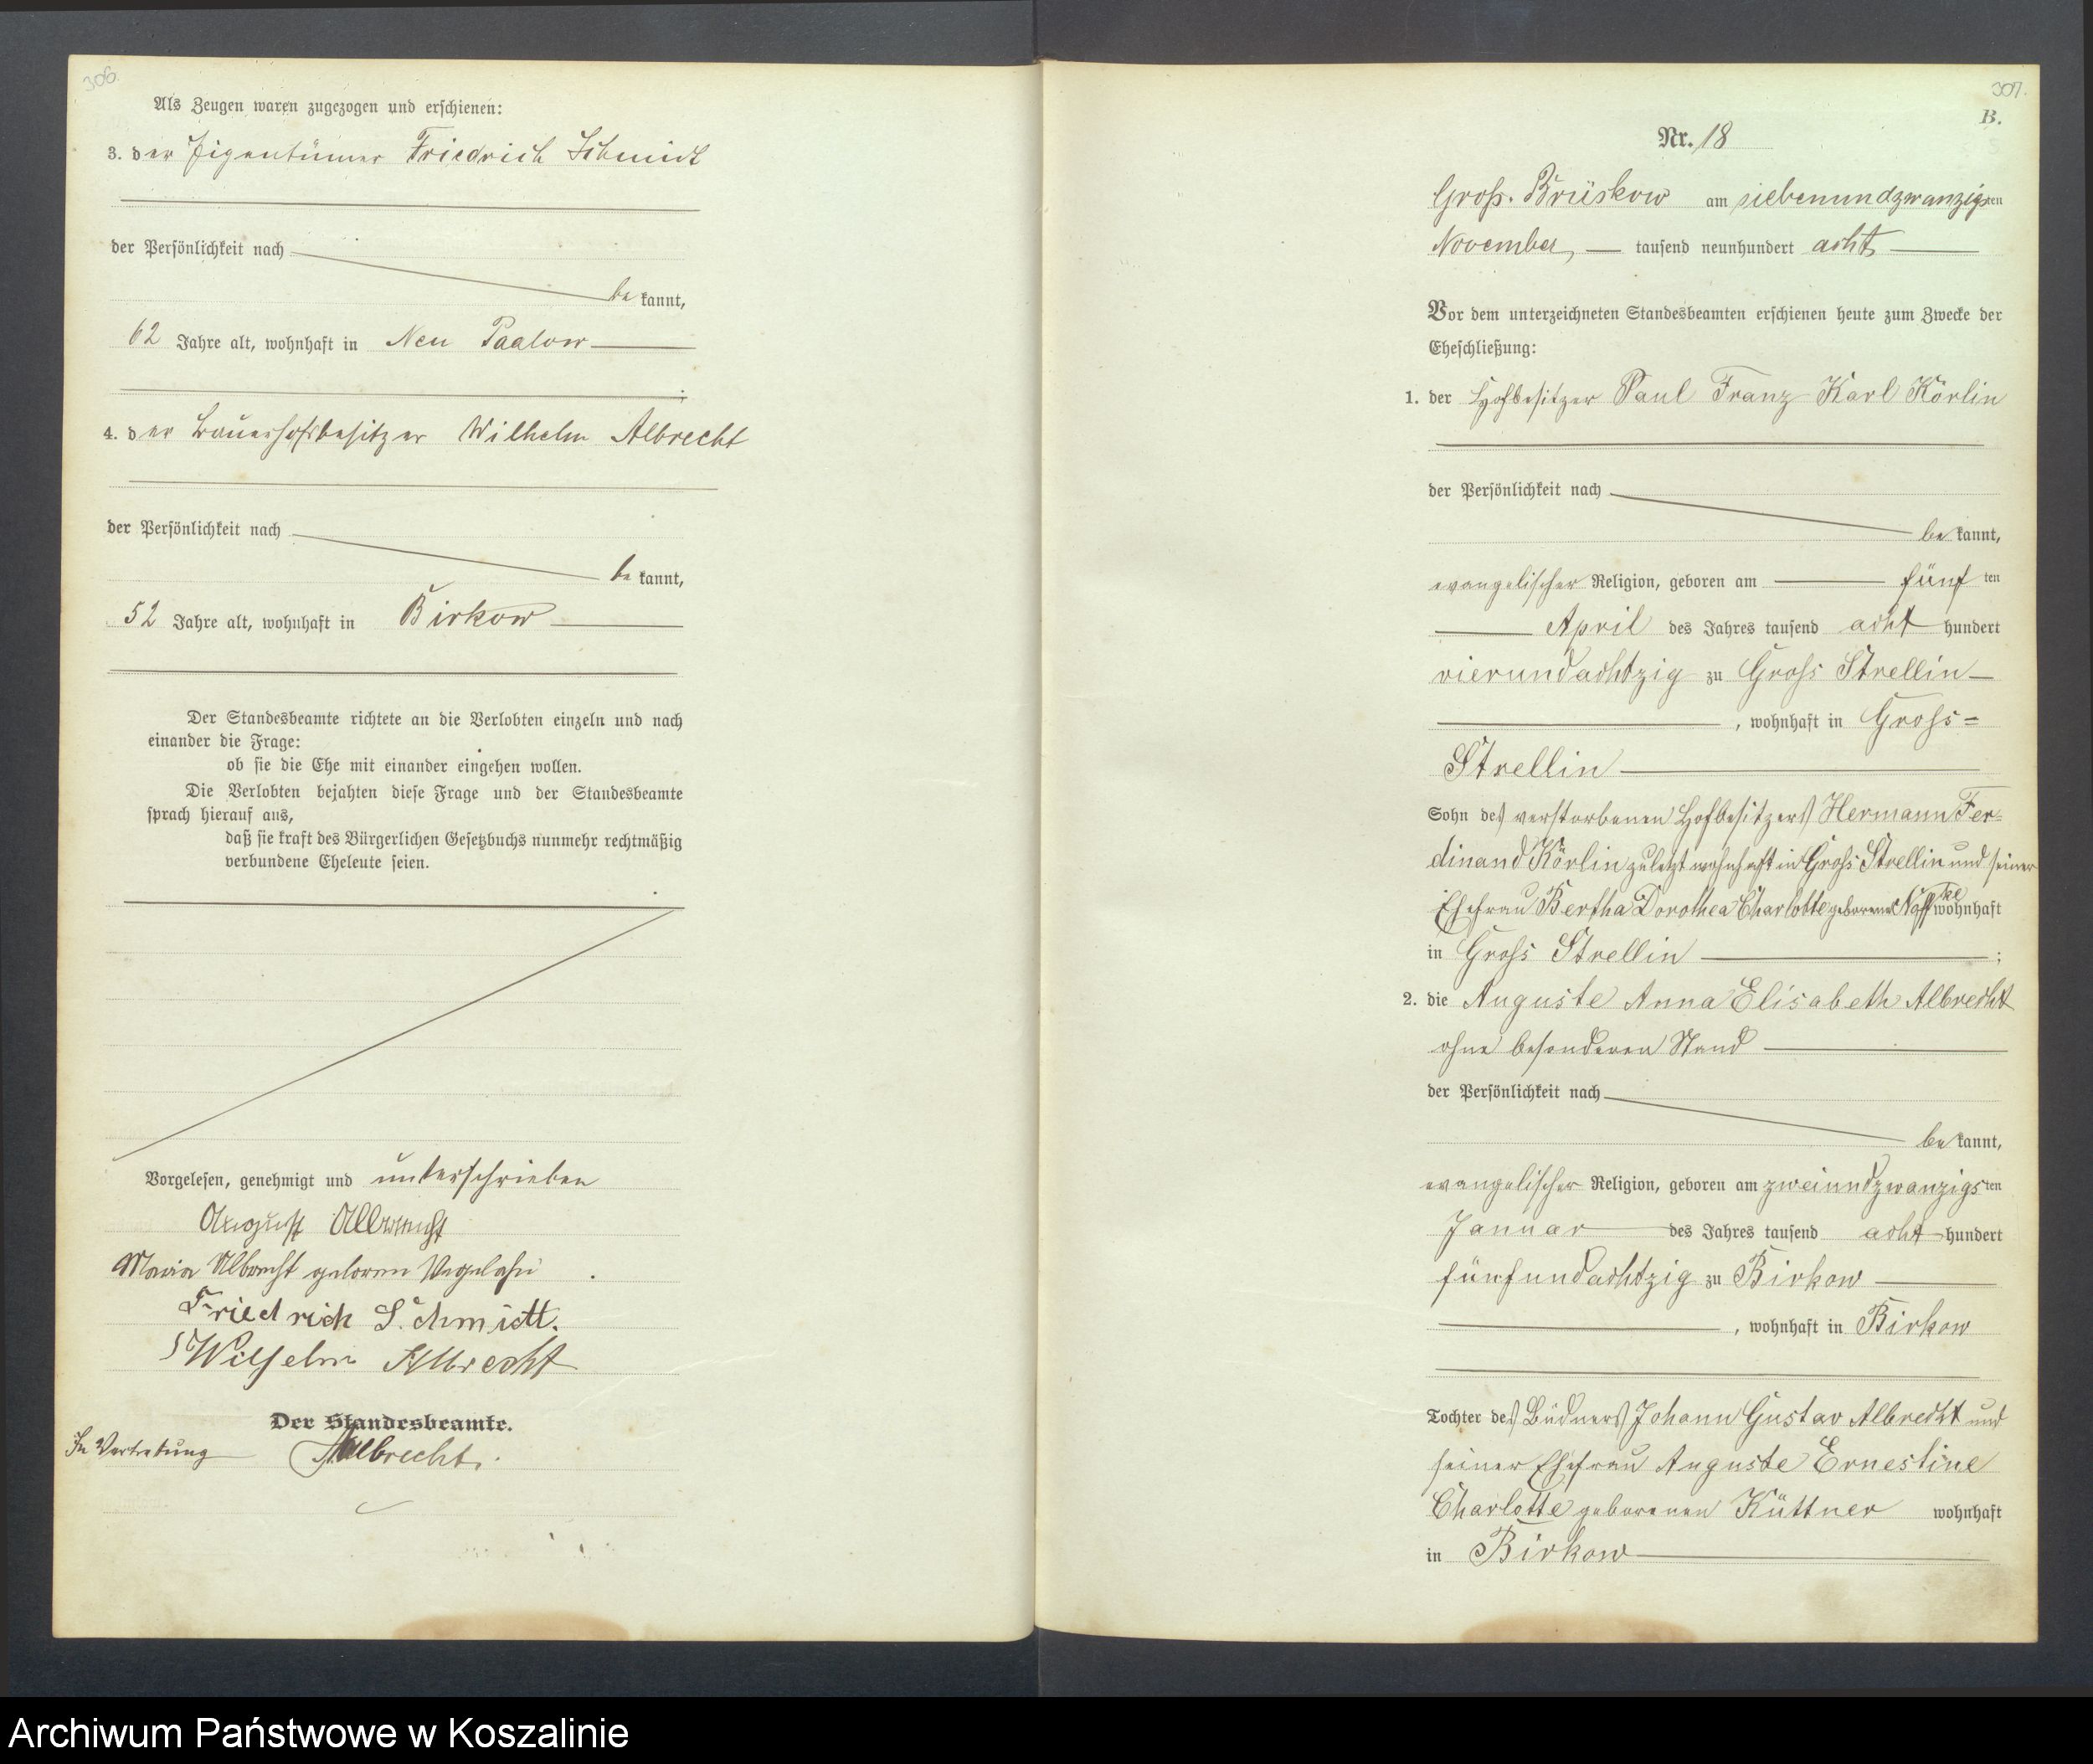 306.
Als Zeugen waren zugezogen und erschienen:
3. der Eigentümer Friedrich Schmidt
der Persönlichkeit nach
be kannt,
62 Jahre alt, wohnhaft in Neu Paalow
;
4. der Bauerhofsbesitzer Wilhelm Albrecht
der Persönlichkeit nach
be kannt,
52 Jahre alt, wohnhaft in Birkow
Der Standesbeamte richtete an die Verlobten einzeln und nach
einander die Frage:
ob sie die Ehe mit einander eingehen wollen.
Die Verlobten bejahten diese Frage und der Standesbeamte
sprach hierauf aus,
daß sie kraft des Bürgerlichen Gesetzbuchs nunmehr rechtmäßig
verbundene Eheleute seien.
Vorgelesen, genehmigt und unterschrieben
August Albrecht
Maria Albrecht geboren
Friedrich Schmidt.
Wilhelm Albrecht
Der Standesbeamte.
In Vertretung Albrecht.
307.
B.
Nr. 18
Groß. Brüskow am siebenundzwanzigsten
November, tausend neunhundert acht
Vor dem unterzeichneten Standesbeamten erschienen heute zum Zwecke der
Eheschließung:
1. der Hofbesitzer Paul Franz Karl Körlin
der Persönlichkeit nach
be kannt,
evangelischer Religion, geboren am fünf ten
April des Jahres tausend acht hundert
vierundachtzig zu Groß Strellin
, wohnhaft in Groß=
Strellin
Sohn des verstorbenen Hofbesitzers Hermann Fer=
dinand Körlin zuletzt wohnhaft in Groß Strellin und seiner
Ehefrau Bertha Dorothea Charlotte geborene Noffke wohnhaft
in Groß Strellin ;
2. die Auguste Anna Elisabeth Albrecht
ohne besonderen Stand
der Persönlichkeit nach
be kannt,
evangelischer Religion, geboren am zweiundzwanzigsten
Januar des Jahres tausend acht hundert
fünfundachtzig zu Birkow
, wohnhaft in Birkow
Tochter des Büdners Johann Gustav Albrecht und
seiner Ehefrau Auguste Ernestine
Charlotte geborenen Küttner wohnhaft
in Birkow
Archiwum Państwowe w Koszalinie